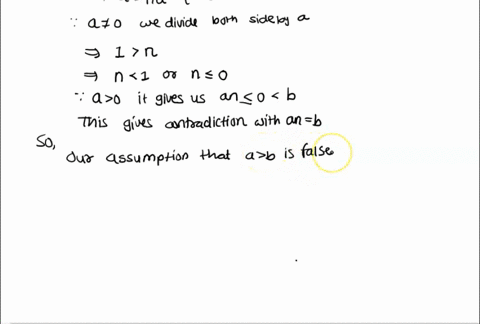 ∵ a≠0 we divide both side by a
⇒ 1 > n
⇒ n < 1 or n ≤ 0
∵ a>0 it gives us an ≤ 0 < b
This gives contradiction with an = b
So,
Our assumption that a>b is false